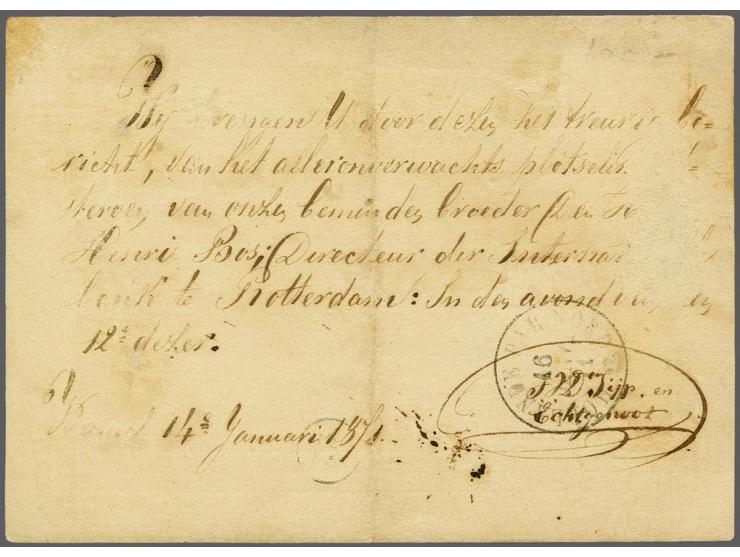 Wij brengen U door dezen het treurig be=
richt, van het alleronverwachts plotselin
sterven van onzen beminden broeder Den
Henri Bos; Directeur der Internat
bank te Rotterdam: In den avond van den
12e dezer.
14de Januari 1871.
en
Echtgenoot